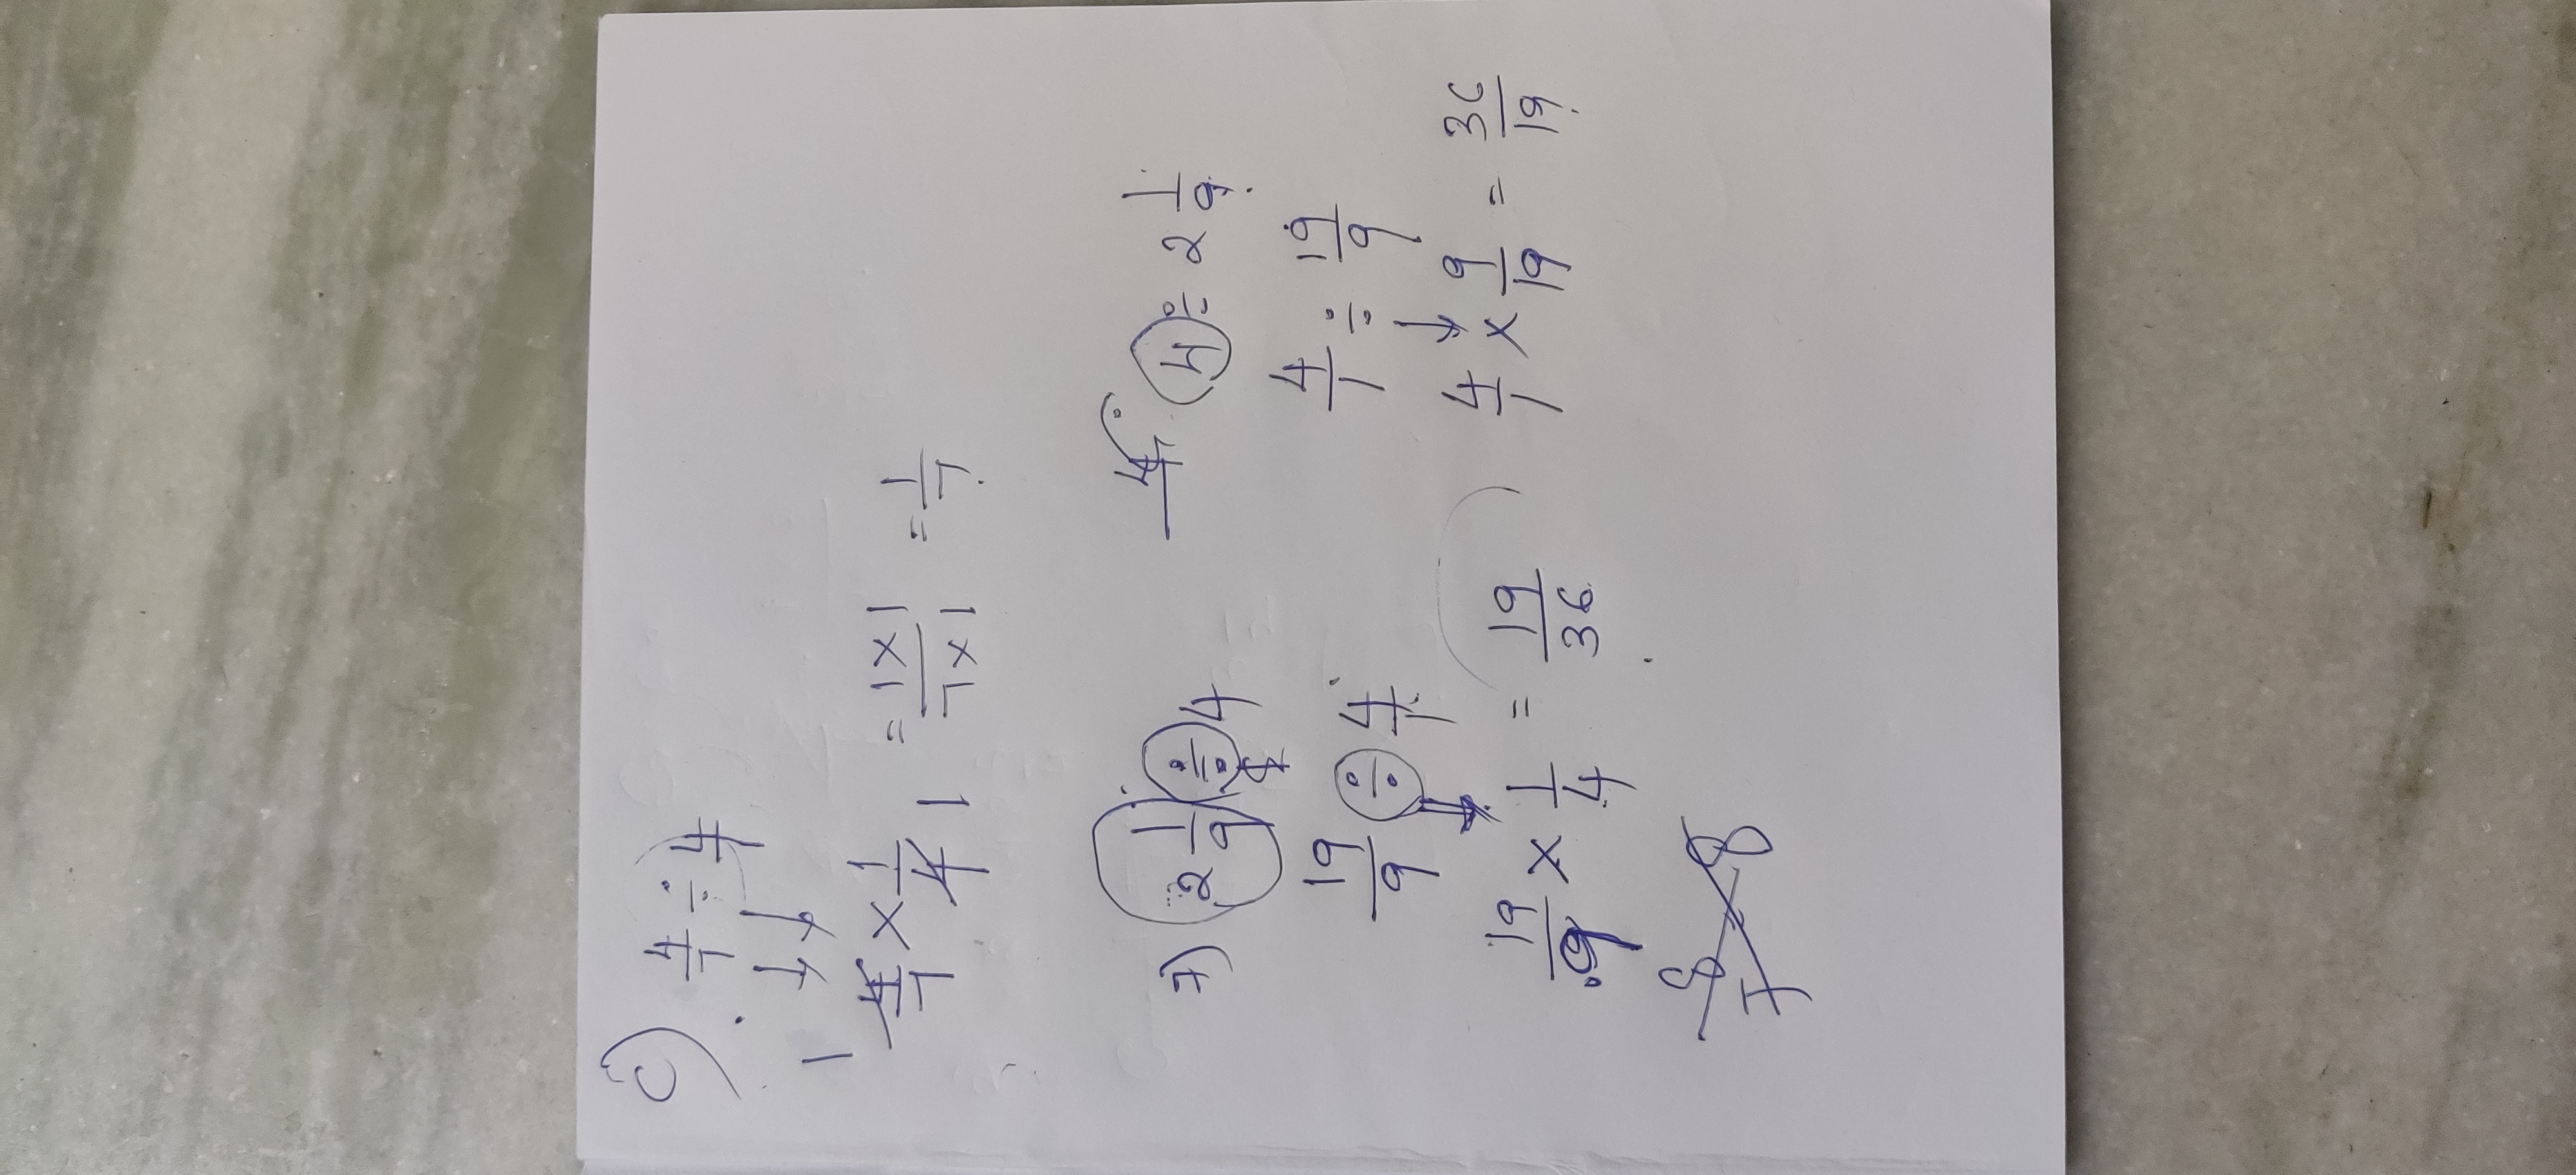 c) 4/7 ÷ 4/1
1
4/7 × 1/4 1 = 1×1/7×1 = 1/7
7) 2 1/9 ÷ 4
19/9 ÷ 4/1
19/9 × 1/4 = 19/36
8/7 8
4 ÷ 2 1/9
4/1 ÷ 19/9
4/1 × 9/19 = 36/19